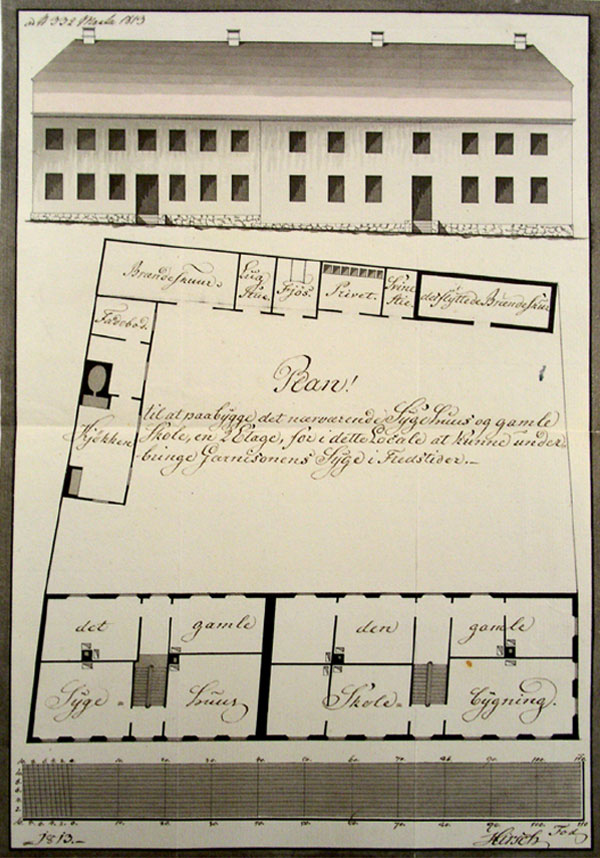 332 1813
Brændeskuur.
Fjös.
Privet.
Svine
Stie.
det flyttede Brændeskuur
Fadebod.
Kjökken
Plan!
til at paabygge det nærværende Sÿge Huus og gamle
Skole, en 2 Etage, for i dette Locale at kunne under-
bringe Garnisonens Sÿge i Fredstider.-
det gamle den gamle
Sÿge- Huus Skole- bÿgning.
10. 20. 30. 40. 50. 60. 70. 80. 90. 100. 110
-1813.- Hirsch
Fod